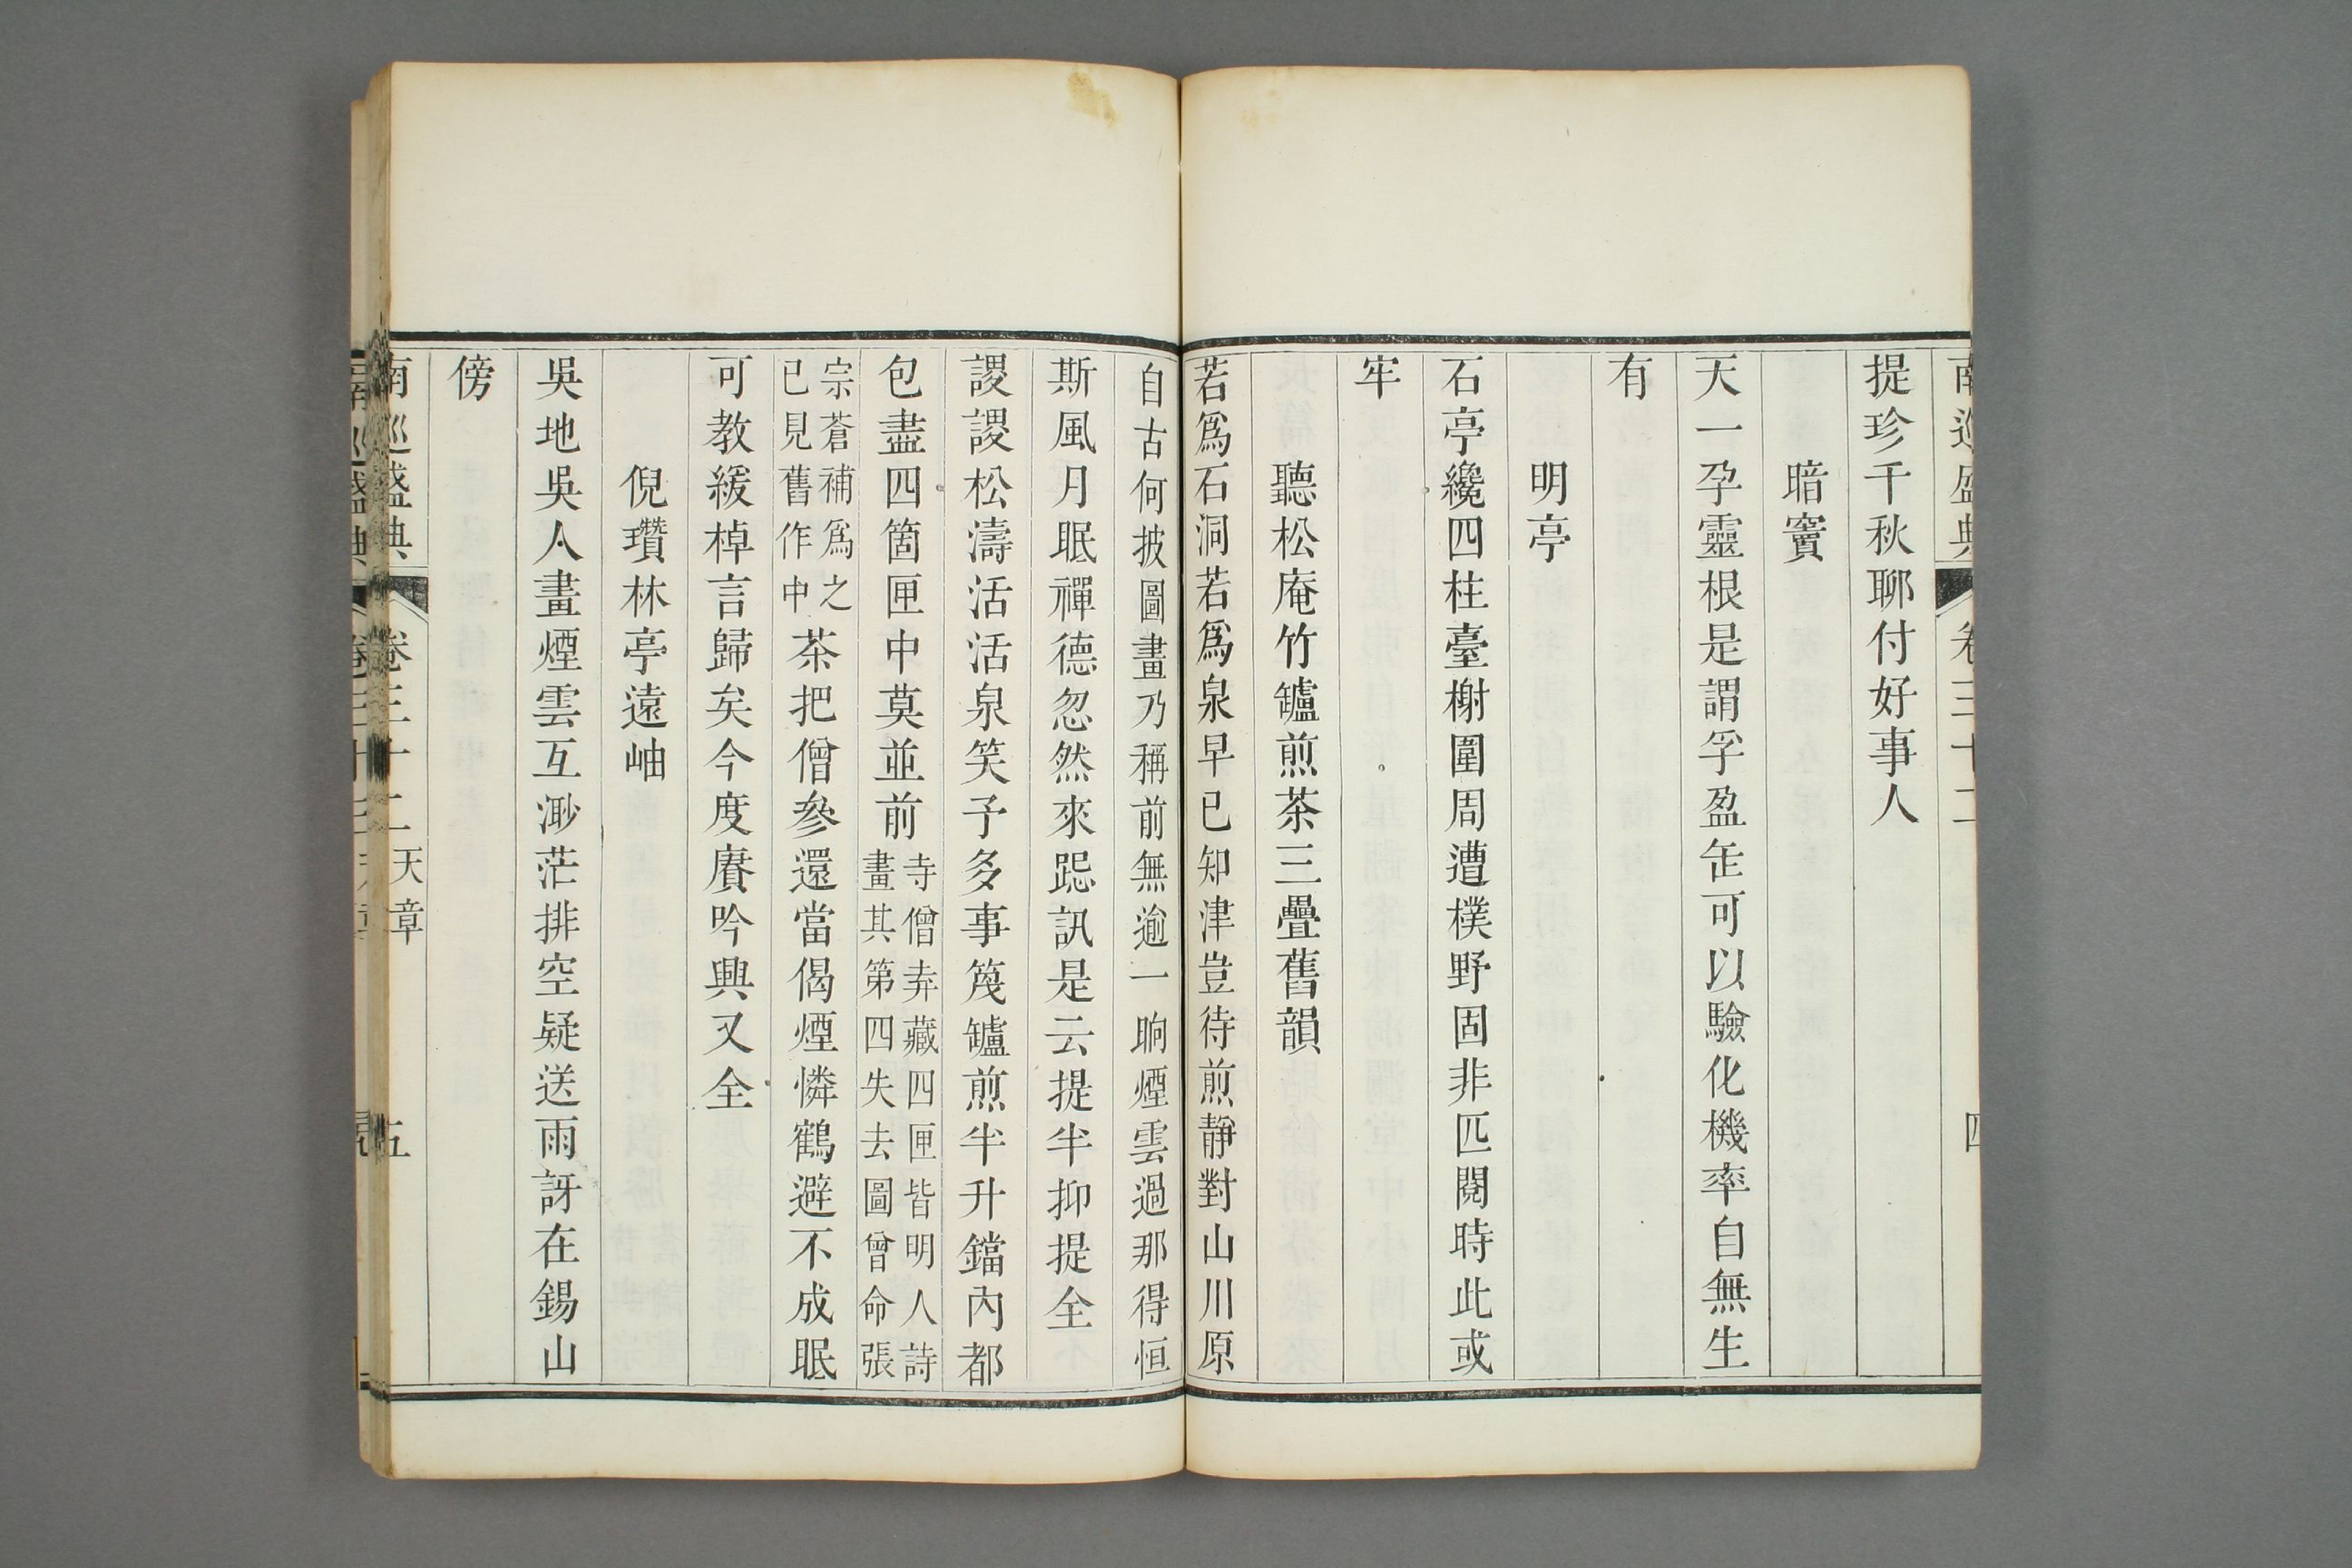 提珍千秋聊付好事人
暗竇
天一孕靈根是謂孚盈缶可以驗化機率自無生
有
明亭
石亭纔四柱臺榭圍周遭樸野固非匹閱時此或
牢
聽松庵竹罏煎茶三疊舊韻
若爲石洞若爲泉早已知津豈待煎靜對山川原
自古何披圖畫乃稱前無逾一晌煙雲過那得恒
斯風月眠禪德忽然來跽訊是云提半抑提全
謖謖松濤活活泉笑予多事篾罏煎半升鐺內都
包盡四箇匣中莫並前
寺僧弆藏四匣皆明人詩
畫其第四失去圖曾命張
宗蒼補爲之
已見舊作中
茶把僧參還當偈煙憐鶴避不成眠
可教緩棹言歸矣今度賡吟興又全
倪瓚林亭遠岫
吳地吳人畫煙雲互渺茫排空疑送雨訝在錫山
傍
南巡盛典
卷三十二
天章
五